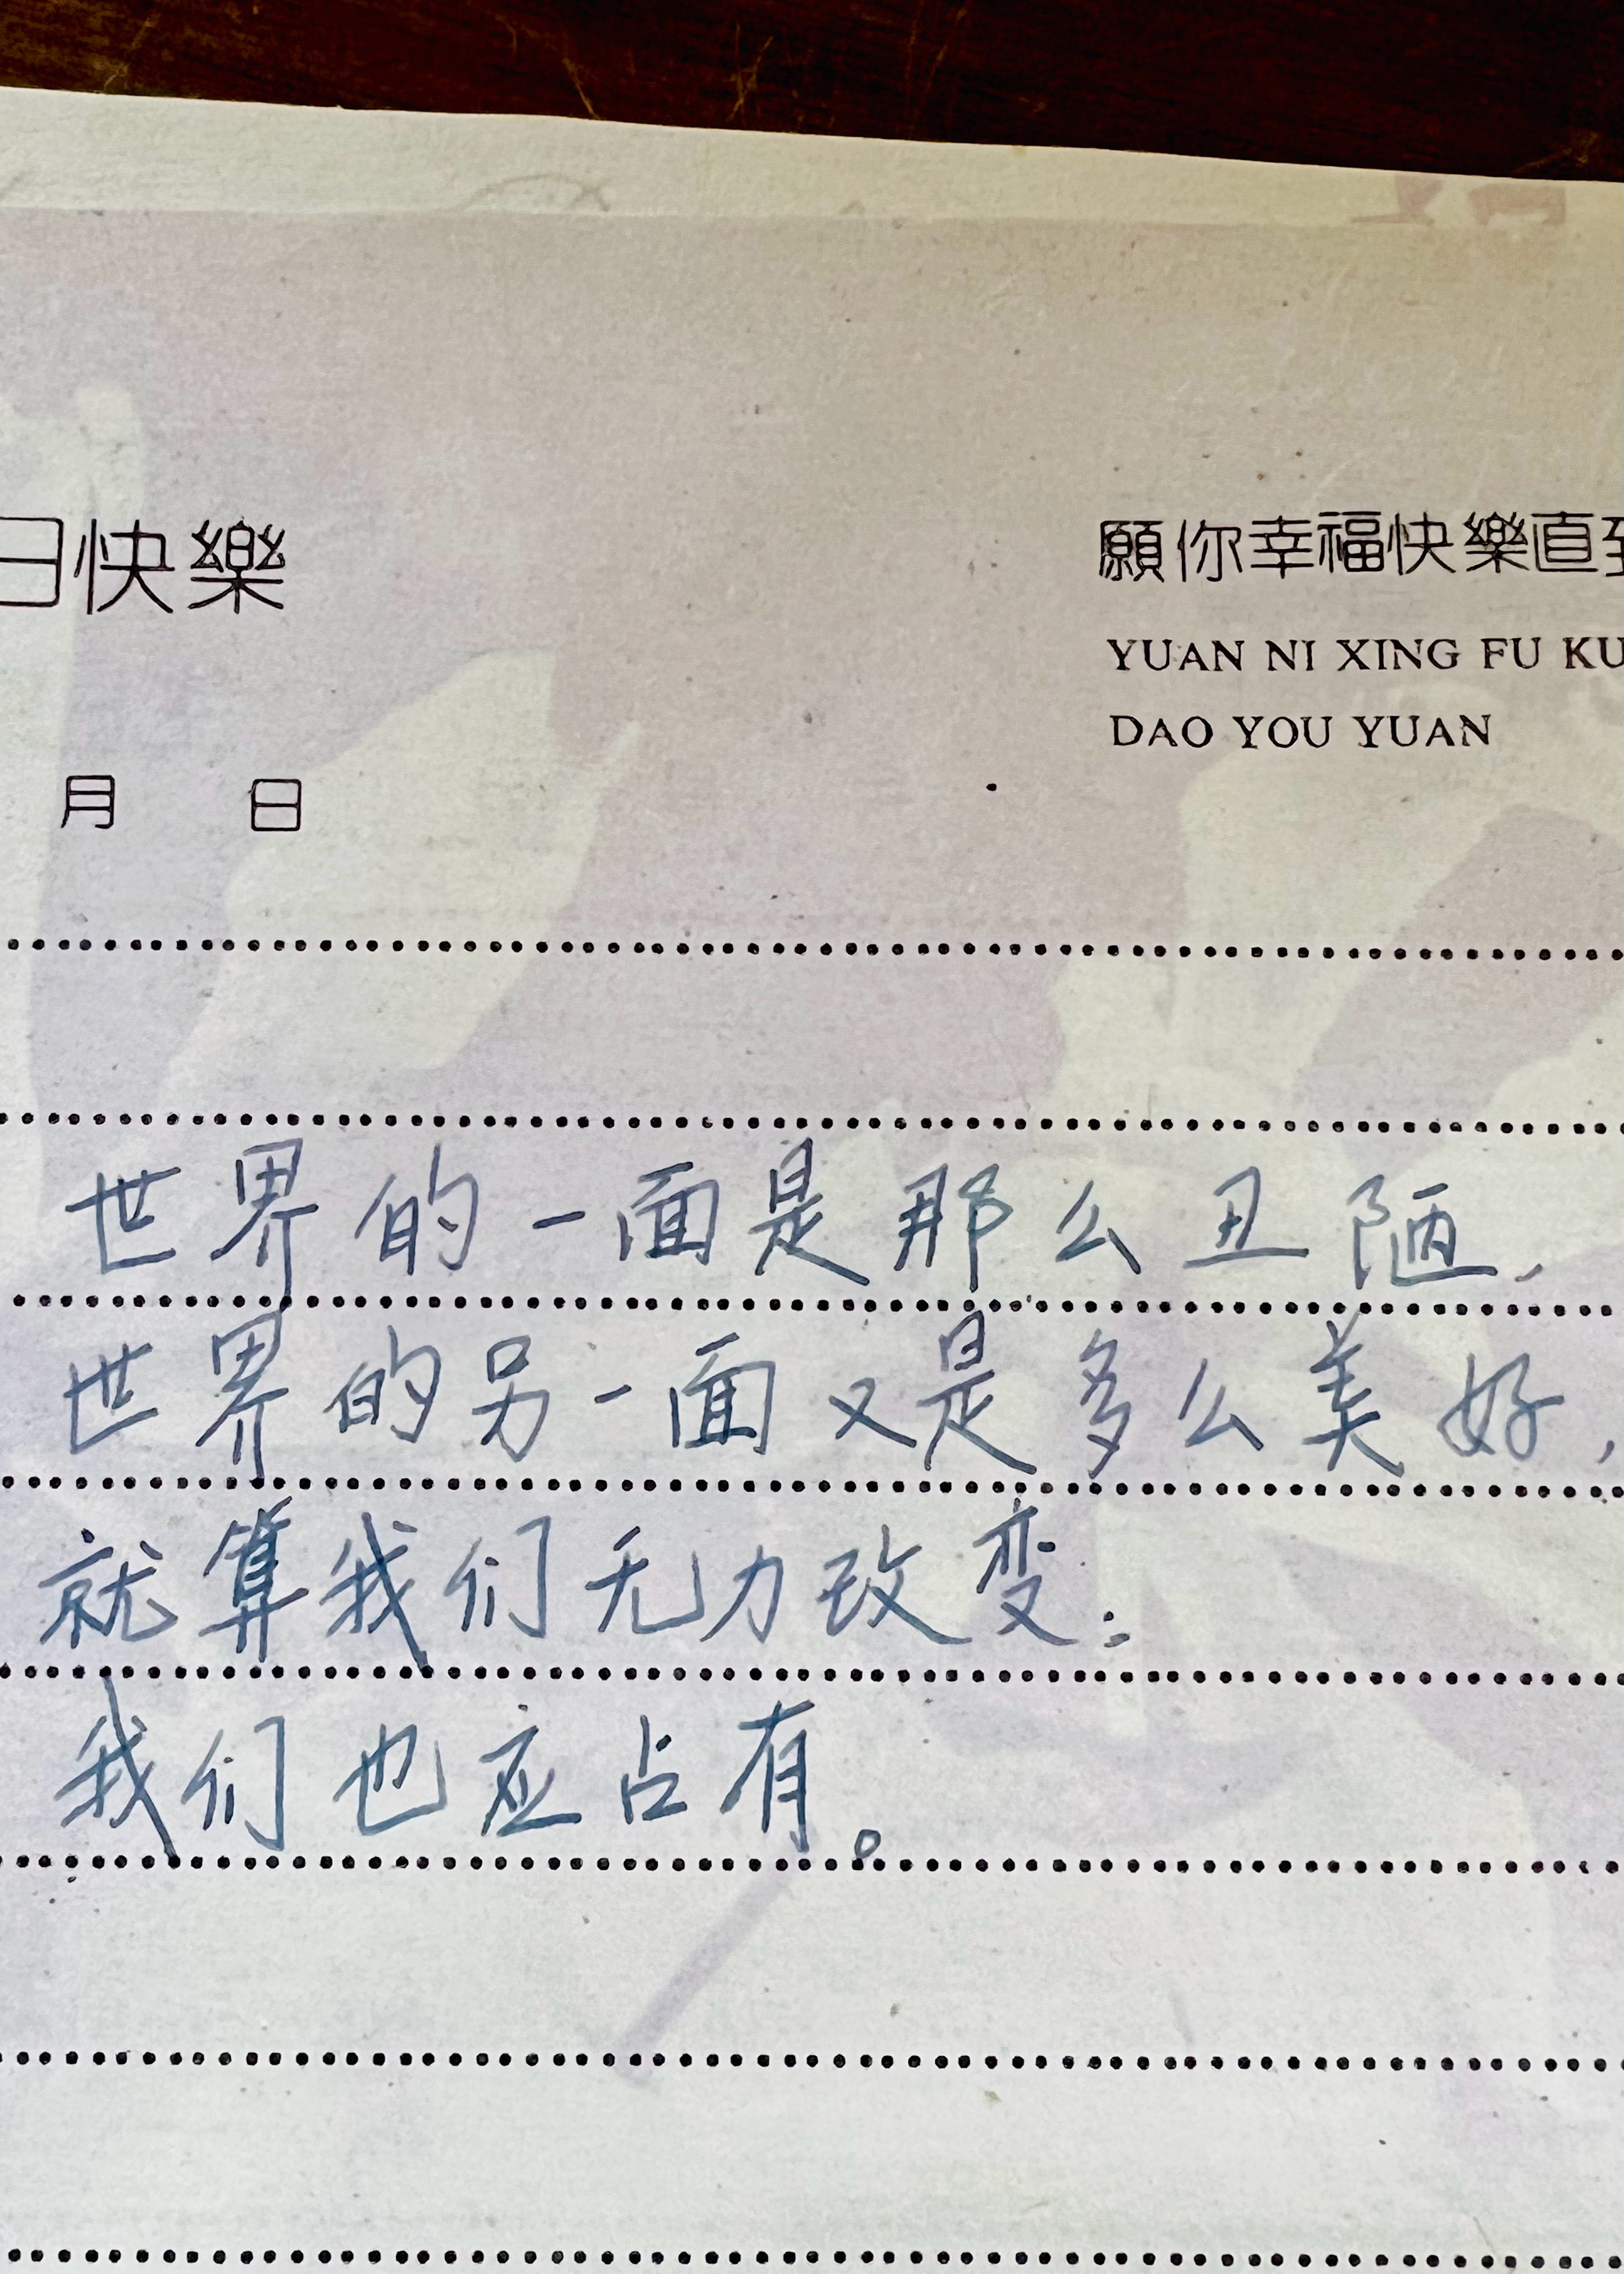 日快樂
願你幸福快樂直到
YUAN NI XING FU KU
DAO YOU YUAN
月 日
世界的一面是那么丑陋,
世界的另一面又是多么美好,
就算我们无力改变;
我们也应占有。